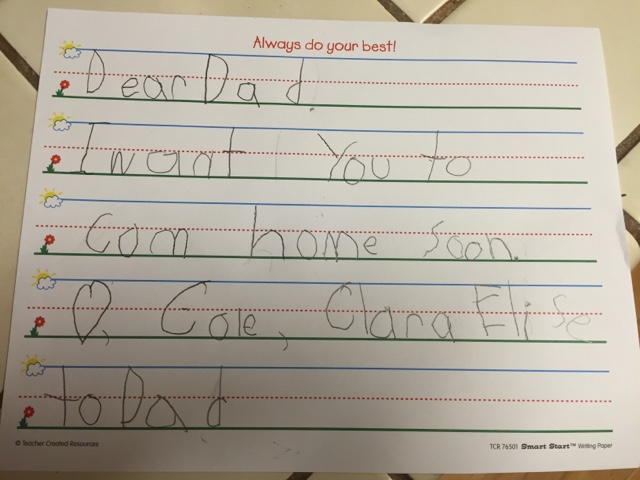 Always do your best!
Dear Dad.
I want You to
Com home soon.
♡, Cole, Clara Elise
to Dad
© Teacher Created Resources TCR 76501 Smart Start™ Writing Paper